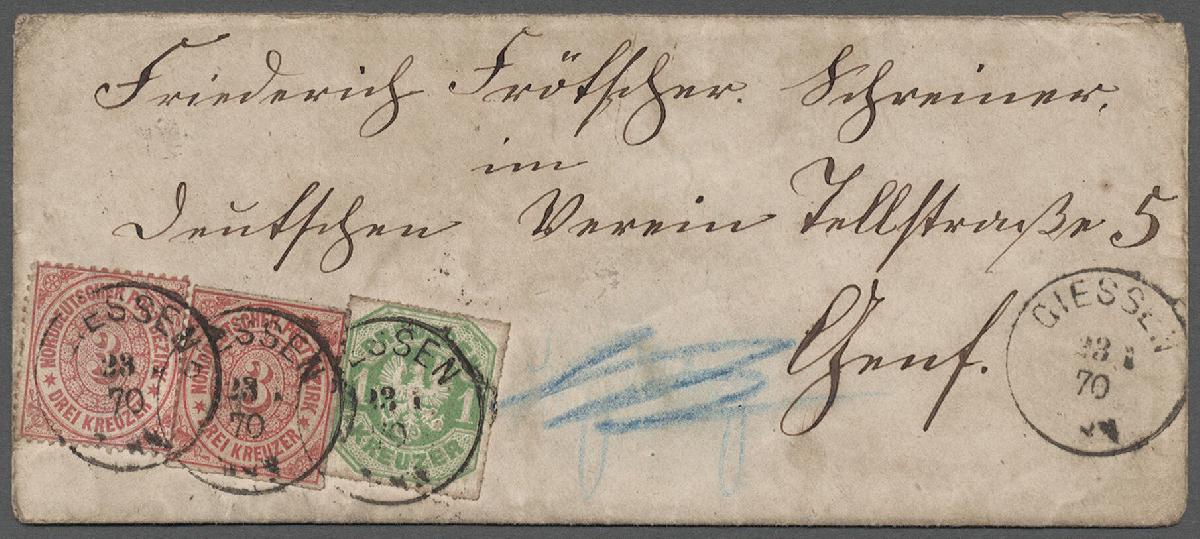 Friederich Frötscher. Schreiner.
im
Deutschen Verein Tellstraße 5
Genf.
GIESSEN
23 1
70
NORDDEUTSCHER POSTBEZIRK
3
DREI KREUZER
GIESSEN
23
70
NORDDEUTSCHER POSTBEZIRK
3
DREI KREUZER
GIESSEN
23 1
70
1 1
KREUZER
GIESSEN
23 1
70